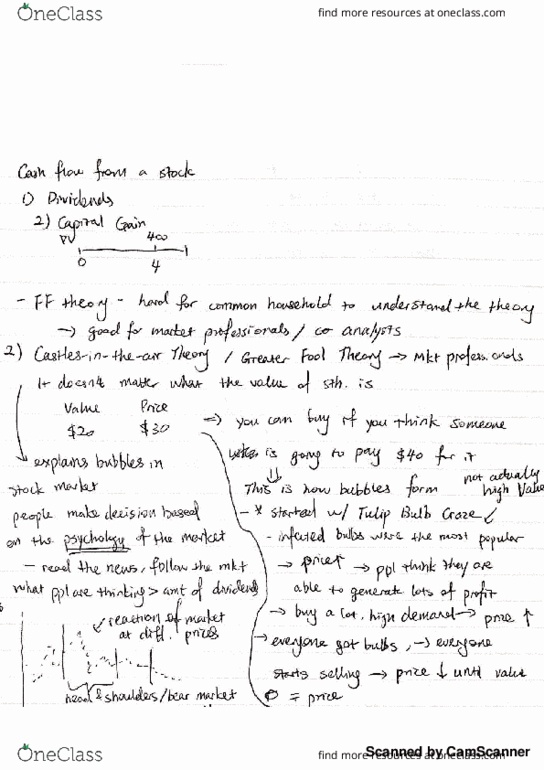 OneClass
find more resources at oneclass.com
Cash flow from a stock
1) Dividends
2) Capital Gain
PV 400
0 4
- FF theory - hard for common household to understand the theory
→ good for market professionals / co analysts
2) Castles-in-the-air Theory / Greater Fool Theory → mkt professionals
It doesn't matter what the value of sth. is
Value Price
$20 $30
⇒ you can buy if you think someone
is going to pay $40 for it
explains bubbles in
stock market
people make decision based
on the psychology of the market
- read the news, follow the mkt
what ppl are thinking > amt of dividends
reaction of market
at diff. prices
head & shoulders/bear market
This is how bubbles form
not actually
high value
- * started w/ Tulip Bulb Craze
- infused bulbs were the most popular
→ price↑ → ppl think they are
able to generate lots of profit
→ buy a lot, high demand → price ↑
→ everyone got bulbs, → everyone
starts selling → price ↓ until value
= price
OneClass
find more resources at oneclass.com
Scanned by CamScanner